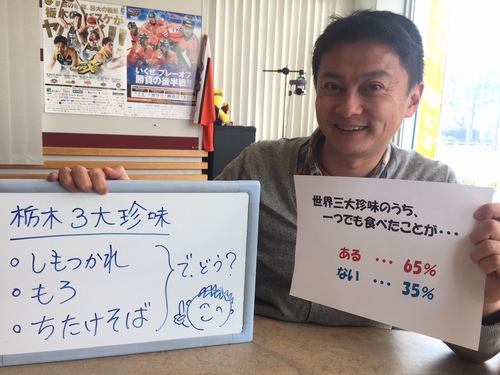 栃木のバスケが
いくぜ、プレーオフ
勝負の後半戦!!
栃木3大珍味
しもつかれ
もろ
ちたけそば
で、どう?
世界三大珍味のうち、
一つでも食べたことが・・・
ある ・・・ 65%
ない ・・・ 35%